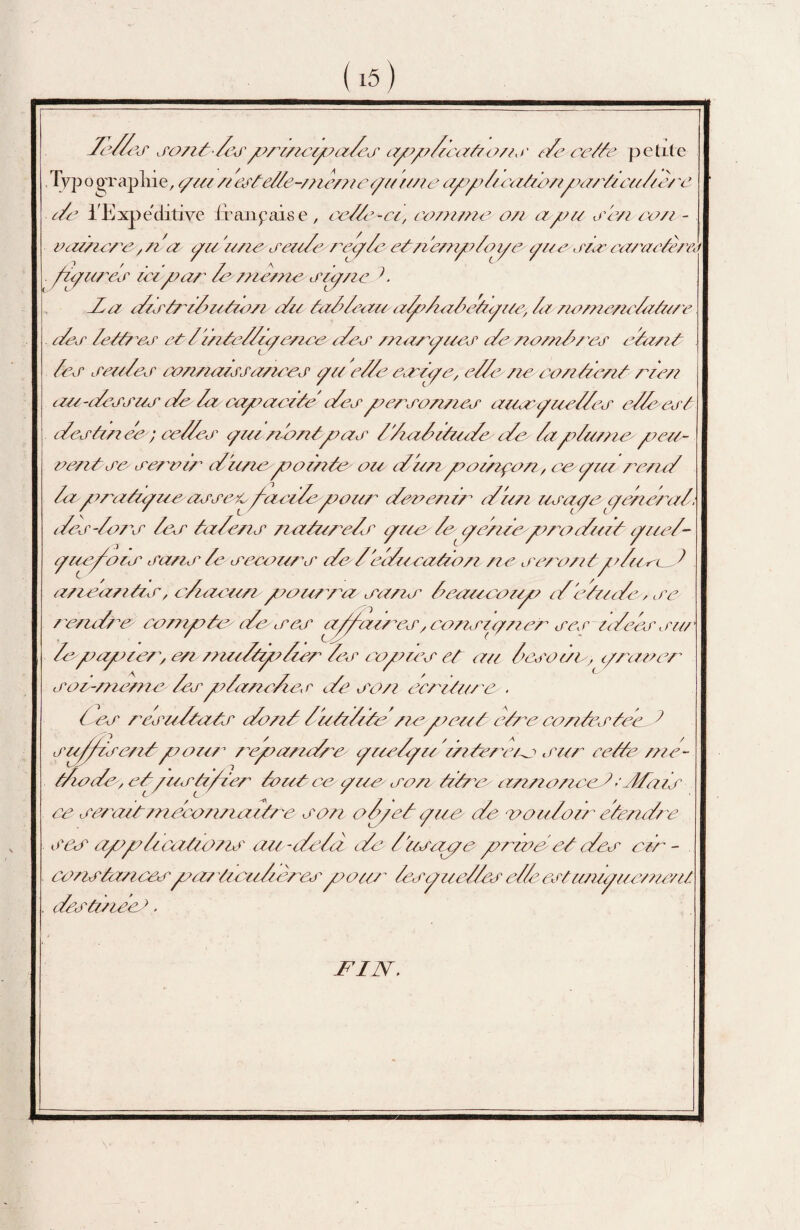 (15)
Telles sont les principales applications de cette petite
Typographie, qui n'est elle-même qu'une application particulière
de l'Expéditive française, celle-ci, comme on a pu s'en con-
vaincre, n'a qu'une seule règle et n'employe que six caractères
figurés ici par le même signe.
La distribution du tableau alphabétique, la nomenclature
des lettres et l'intelligence des marques de nombres étant
les seules connaissances qu'elle exige, elle ne contient rien
au-dessus de la capacité des personnes auxquelles elle est
destinée; celles qui n'ont pas l'habitude de la plume peu-
vent se servir d'une pointe ou d'un poinçon, ce qui rend
la pratique assez facile pour devenir d'un usage général;
dès-lors les talens naturels que le génie produit quel-
quefois sans le secours de l'éducation ne seront plus
anéantis, chacun pourra sans beaucoup d'étude, se
rendre compte de ses affaires, consigner ses idées sur
le papier, en multiplier les copies et au besoin, graver
soi-même les planches de son écriture.
Ces résultats dont l'utilité ne peut être contestée
suffisent pour répandre quelqu'intérêt sur cette mé-
thode, et justifier tout ce que son titre annonce: Mais
ce serait méconnaître son objet que de vouloir étendre
ses applications au-delà de l'usage privé et des cir-
constances particulières pour lesquelles elle est uniquement
destinée.
FIN.